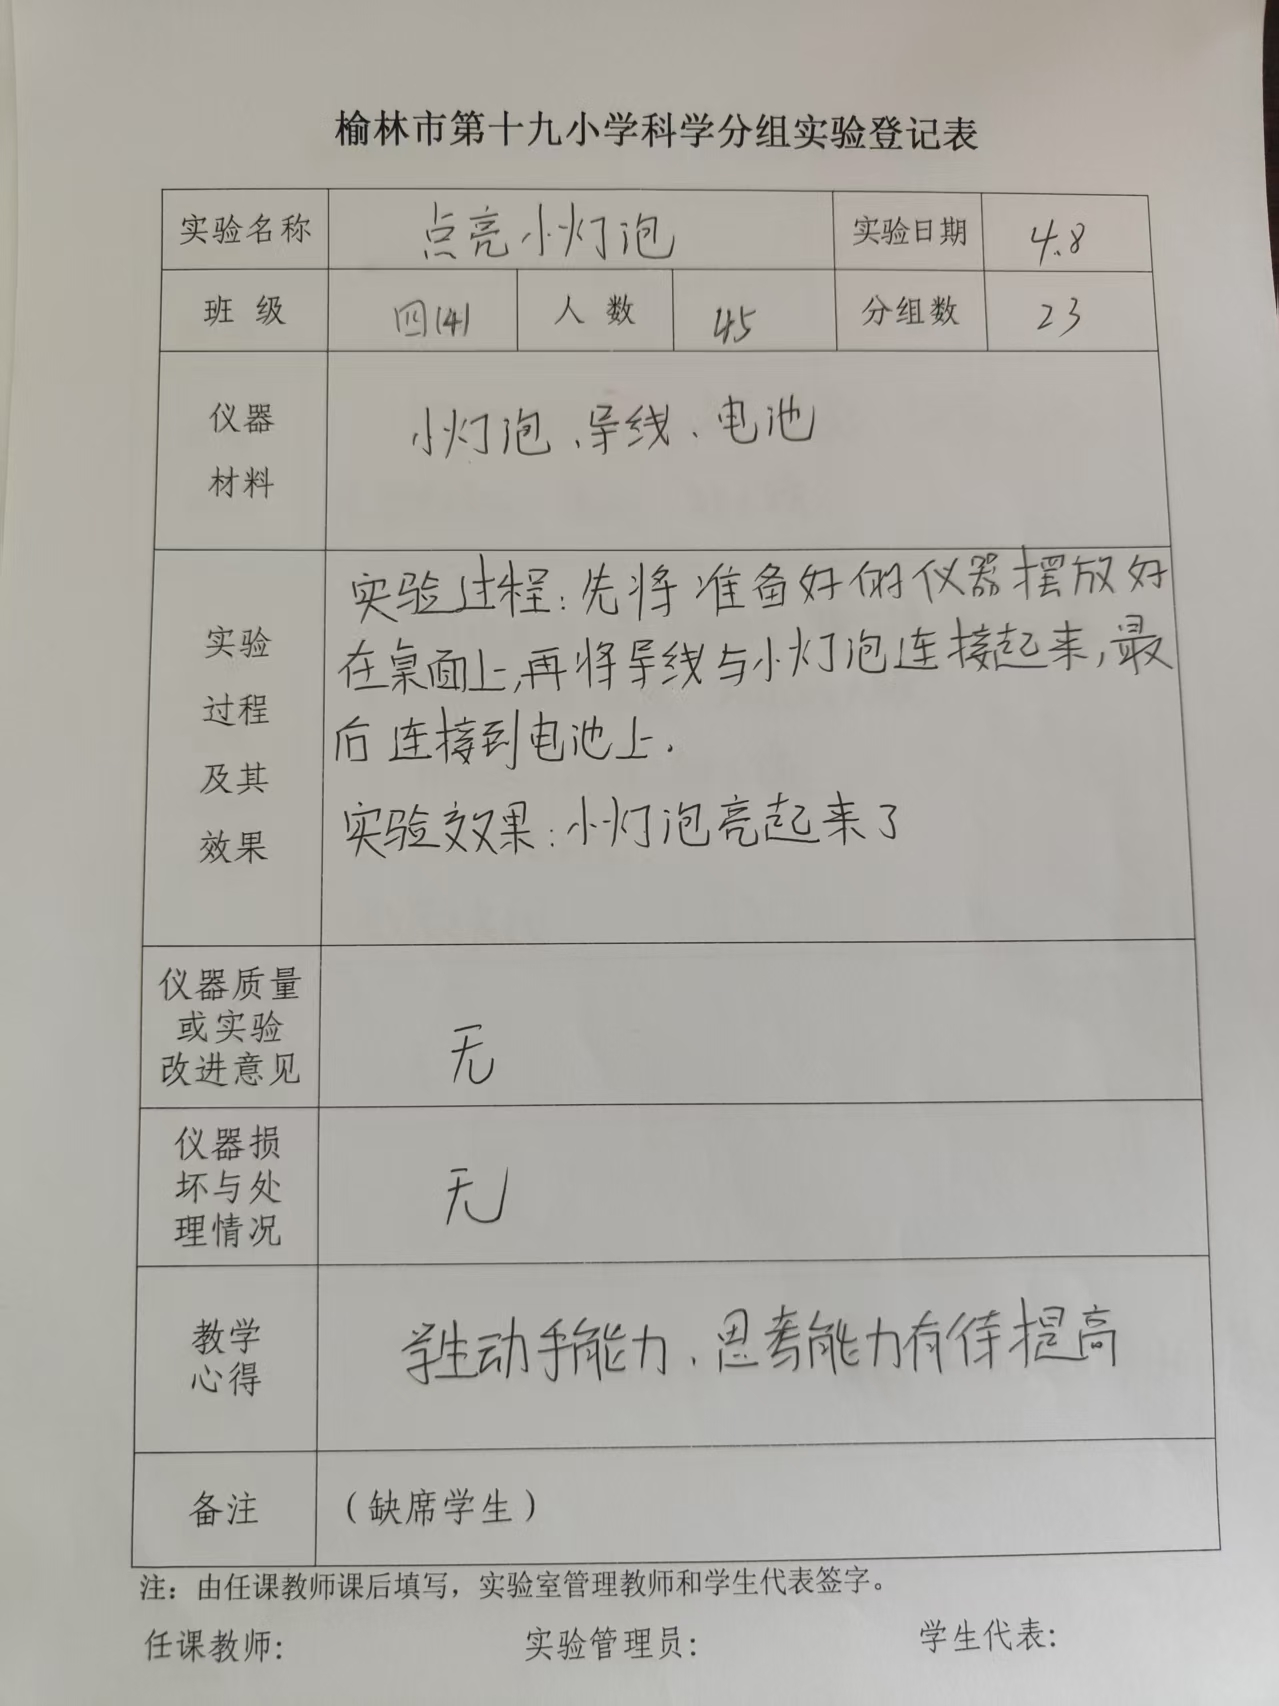 榆林市第十九小学科学分组实验登记表
实验名称 点亮小灯泡 实验日期 4.8
班 级 四(4) 人 数 45 分组数 23
仪器
材料
小灯泡、导线、电池
实验
过程
及其
效果
实验过程:先将准备好的仪器摆放好
在桌面上,再将导线与小灯泡连接起来,最
后连接到电池上.
实验效果:小灯泡亮起来了
仪器质量
或实验
改进意见
无
仪器损
坏与处
理情况
无
教学
心得
学生动手能力、思考能力有待提高
备注 (缺席学生)
注:由任课教师课后填写,实验室管理教师和学生代表签字。
任课教师: 实验管理员: 学生代表: